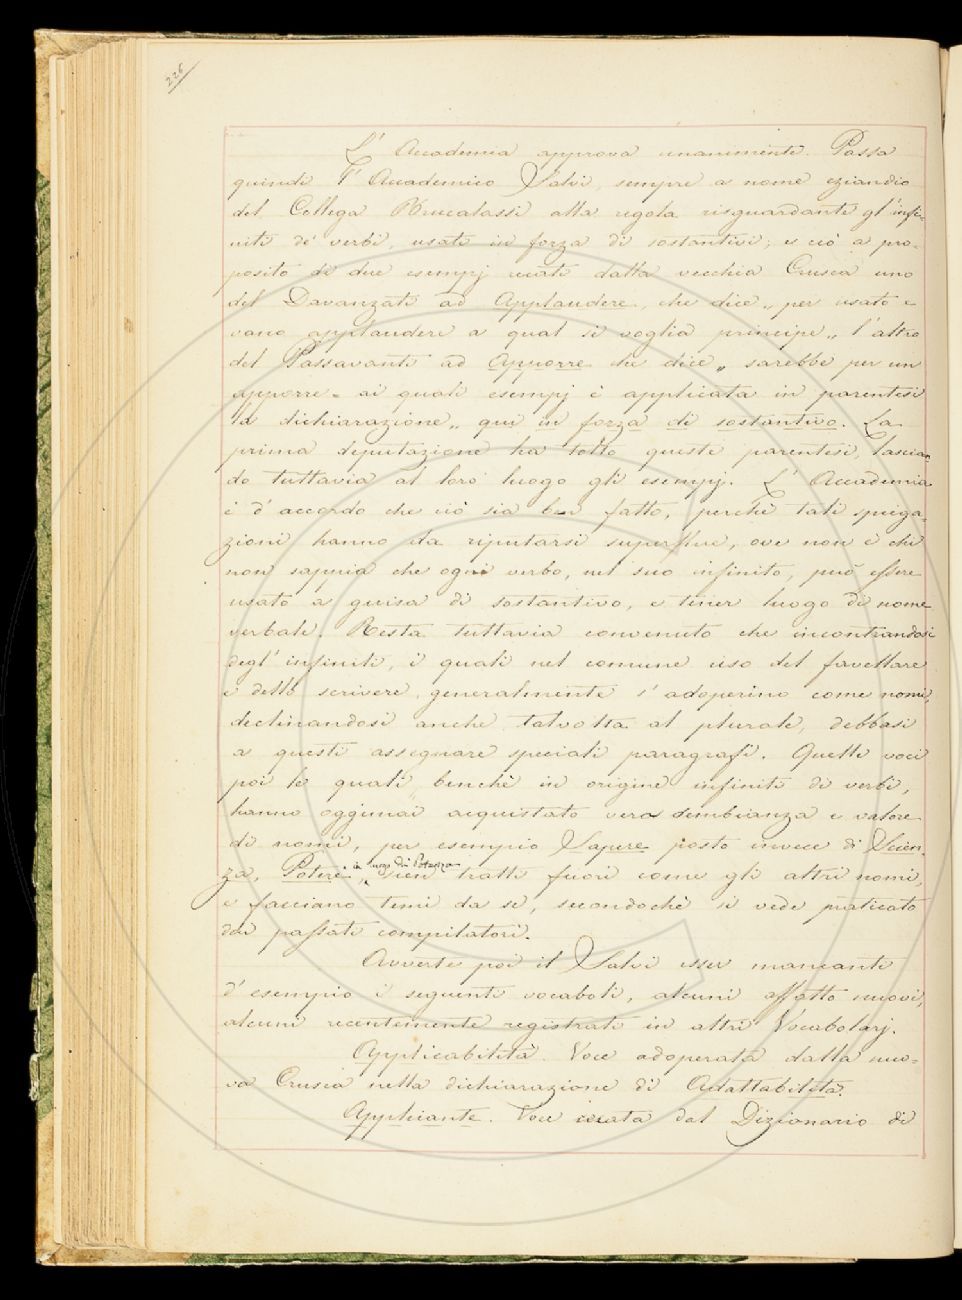 226
L' Accademia approva unanimente. Passa
quindi l' Accademico Salvi, sempre a nome eziandio
del Collega Brucalassi alla regola risguardante gl'infi-
niti de' verbi, usati in forza di sostantivi; e ciò a pro-
posito di due esempj recati dalla vecchia Crusca uno
del Davanzati ad Applaudere, che dice „ per usato e
vano applaudere a qual si voglia principe „ l'altro
del Passavanti ad Apporre che dice „ sarebbe per un
apporre „ ai quali esempj è applicata in parentesi
la dichiarazione „ qui in forza di sostantivo. La
prima deputazione ha tolto queste parentesi, lascian-
do tuttavia al loro luogo gli esempj. L' Accademia
è d'accordo che ciò sia ben fatto, perchè tali spiega-
zioni hanno da riputarsi superflue, ove non è chi
non sappia che ogni verbo, nel suo infinito, può essere
usato a guisa di sostantivo, e tener luogo di nome
verbale. Resta tuttavia convenuto che incontrandosi
degl' infiniti, i quali nel comune uso del favellare
e dello scrivere, generalmente s'adoperino come nomi,
declinandosi anche talvolta al plurale, debbasi
a questi assegnare speciali paragrafi. Quelle voci
poi le quali, benchè in origine infiniti di verbi,
hanno oggimai acquistato vera sembianza e valore
di nomi, per esempio Sapere posto invece di Scien-
za, Potere, in luogo di Potenza sien tratti fuori come gli altri nomi,
e facciano temi da se, secondochè si vede praticato
dai passati compilatori.
Avverte poi il Salvi esser mancanti
d'esempio i seguenti vocaboli, alcuni affatto nuovi,
alcuni recentemente registrati in altri Vocabolarj.
Applicabilità. Voce adoperata dalla nuo-
va Crusca nella dichiarazione di Adattabilità.
Applicante. Voce recata dal Dizionario di